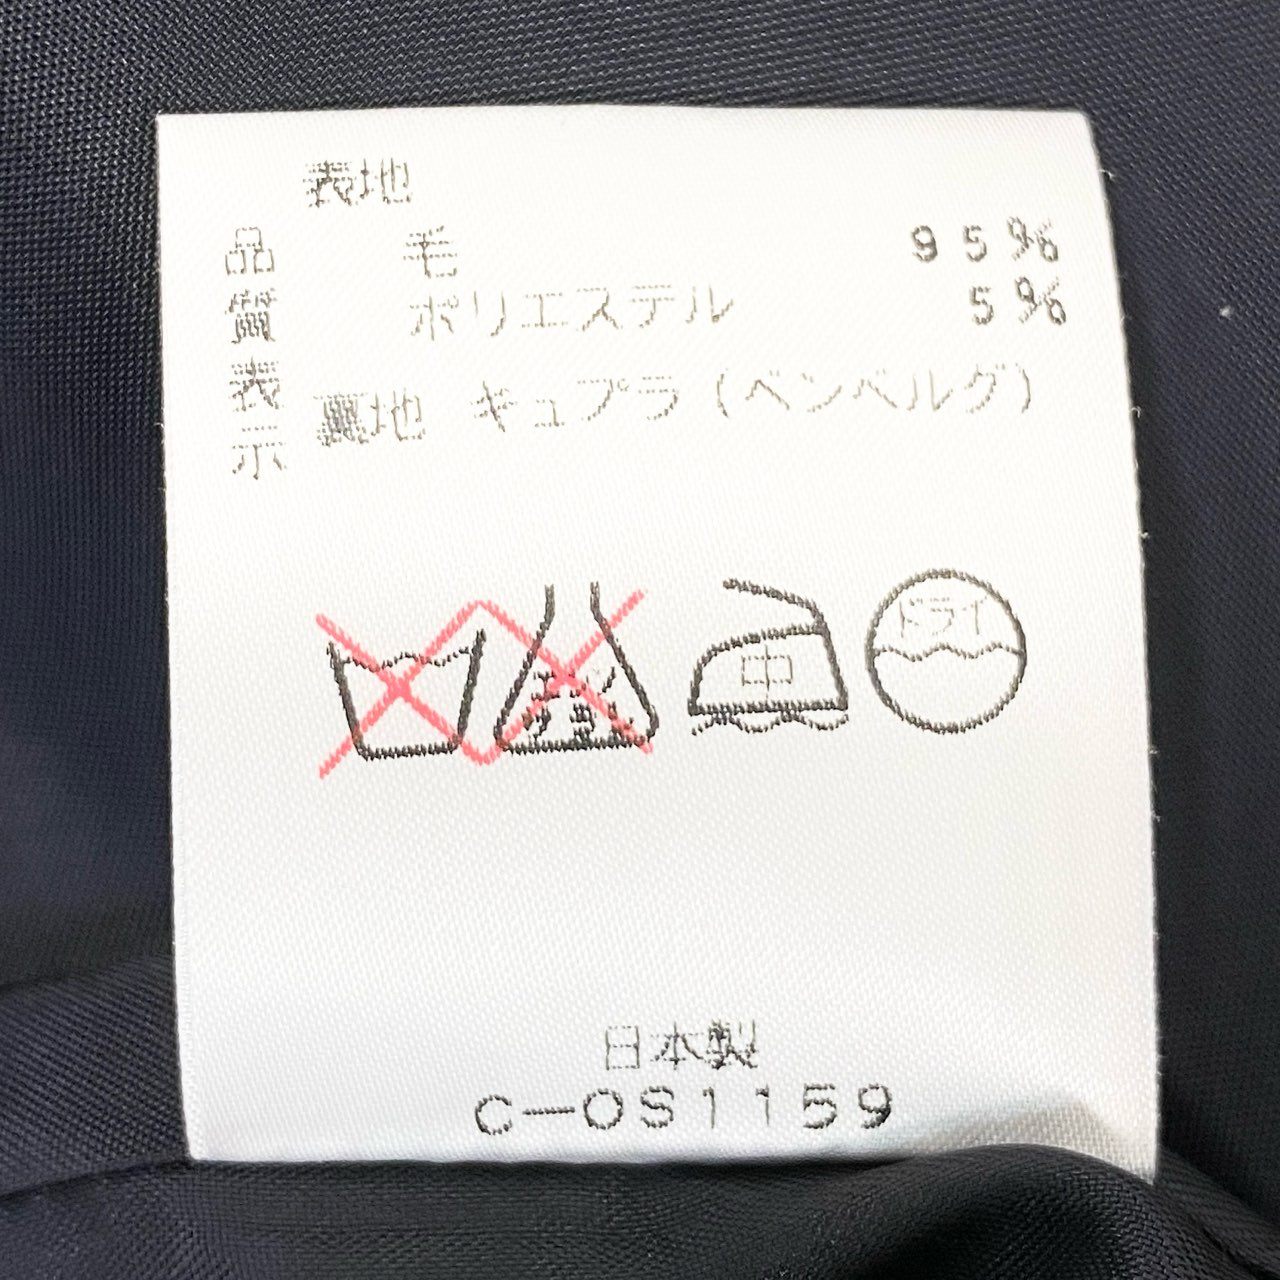 品質表示
表地
毛 95%
ポリエステル 5%
裏地 キュプラ(ベンベルグ)
エンソ
サラシ
中
ドライ
日本製
C-OS1159